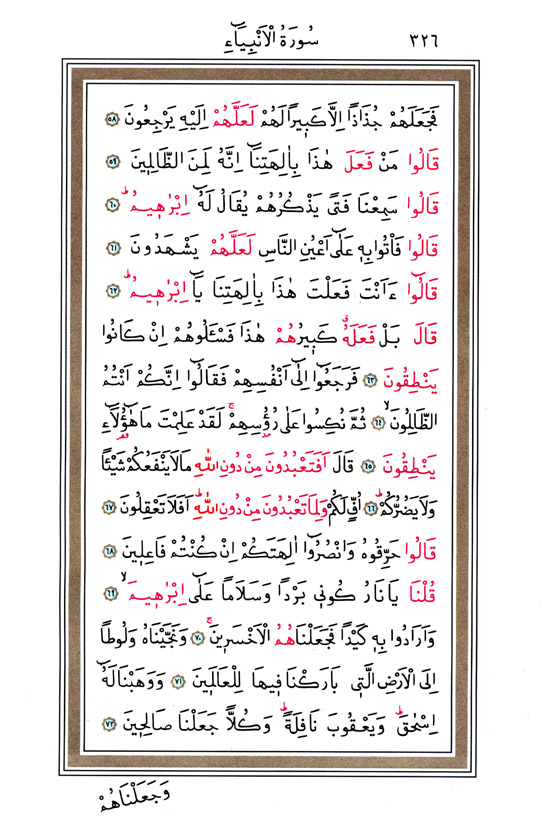 ٣٢٦ سُورَةُ الْاَنْبِيَٓاءِ
فَجَعَلَهُمْ جُذَاذًا اِلَّا كَب۪يرًا لَهُمْ لَعَلَّهُمْ اِلَيْهِ يَرْجِعُونَ ٥٨
قَالُوا مَنْ فَعَلَ هٰذَا بِاٰلِهَتِنَٓا اِنَّهُ لَمِنَ الظَّالِم۪ينَ ٥٩
قَالُوا سَمِعْنَا فَتًى يَذْكُرُهُمْ يُقَالُ لَهُٓ اِبْرٰه۪يمُۜ ٦٠
قَالُوا فَأْتُوا بِه۪ عَلٰٓى اَعْيُنِ النَّاسِ لَعَلَّهُمْ يَشْهَدُونَ ٦١
قَالُٓوا ءَاَنْتَ فَعَلْتَ هٰذَا بِاٰلِهَتِنَا يَٓا اِبْرٰه۪يمُۜ ٦٢
قَالَ بَلْ فَعَلَهُۗ كَب۪يرُهُمْ هٰذَا فَسْـَٔلُوهُمْ اِنْ كَانُوا
يَنْطِقُونَ ٦٣ فَرَجَعُٓوا اِلٰٓى اَنْفُسِهِمْ فَقَالُٓوا اِنَّكُمْ اَنْتُمُ
الظَّالِمُونَۙ ٦٤ ثُمَّ نُكِسُوا عَلٰى رُؤُ۫سِهِمْۚ لَقَدْ عَلِمْتَ مَا هٰٓؤُ۬لَٓاءِ
يَنْطِقُونَ ٦٥ قَالَ اَفَتَعْبُدُونَ مِنْ دُونِ اللّٰهِ مَا لَا يَنْفَعُكُمْ شَيْـًٔا
وَلَا يَضُرُّكُمْۜ ٦٦ اُفٍّ لَكُمْ وَلِمَا تَعْبُدُونَ مِنْ دُونِ اللّٰهِۜ اَفَلَا تَعْقِلُونَ ٦٧
قَالُوا حَرِّقُوهُ وَانْصُرُٓوا اٰلِهَتَكُمْ اِنْ كُنْتُمْ فَاعِل۪ينَ ٦٨
قُلْنَا يَا نَارُ كُون۪ي بَرْدًا وَسَلَامًا عَلٰٓى اِبْرٰه۪يمَۙ ٦٩
وَاَرَادُوا بِه۪ كَيْدًا فَجَعَلْنَاهُمُ الْاَخْسَر۪ينَۚ ٧٠ وَنَجَّيْنَاهُ وَلُوطًا
اِلَى الْاَرْضِ الَّت۪ي بَارَكْنَا ف۪يهَا لِلْعَالَم۪ينَ ٧١ وَوَهَبْنَا لَهُٓ
اِسْحٰقَۜ وَيَعْقُوبَ نَافِلَةًۜ وَكُلًّا جَعَلْنَا صَالِح۪ينَ ٧٢
وَجَعَلْنَاهُمْ